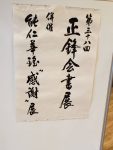 第三十八回
正鋒会書展
併催
能仁華瑤"感謝"展